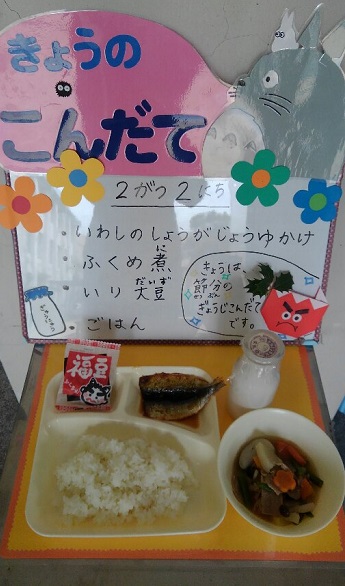 きょうの
こんだて
2がつ2にち
・いわしのしょうがじょうゆかけ
・ふくめ煮
に
・いり大豆
だいず
・ごはん
きょうは、
節分の
せつぶん
ぎょうじこんだて
です。
福豆